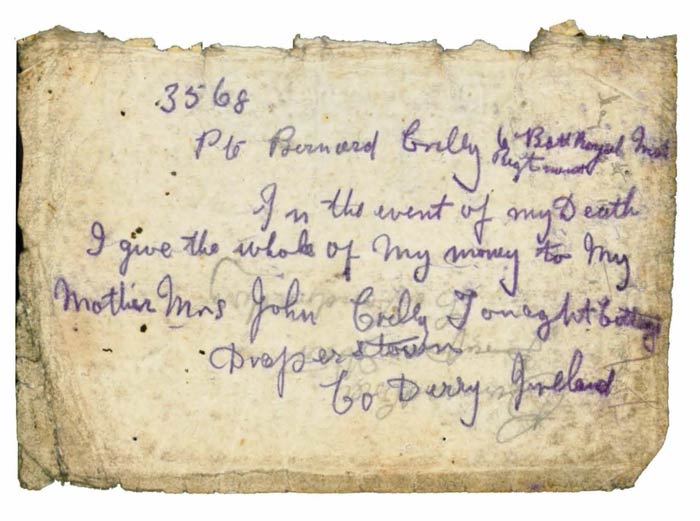 3568
Pte Bernard Crilly 6 Batt Royal Irish
Regt
In the event of my Death
I give the whole of My money to My
Mother Mrs John Crilly Tonaght Cottage
Draperstown
Co Derry Ireland